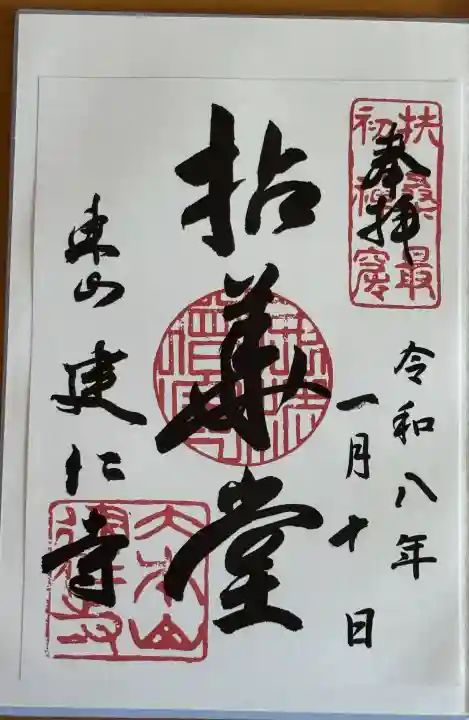 奉拝
扶桑最
初禅窟
令和八年
一月十日
拈華堂
東山 建仁寺
大本山
建仁寺